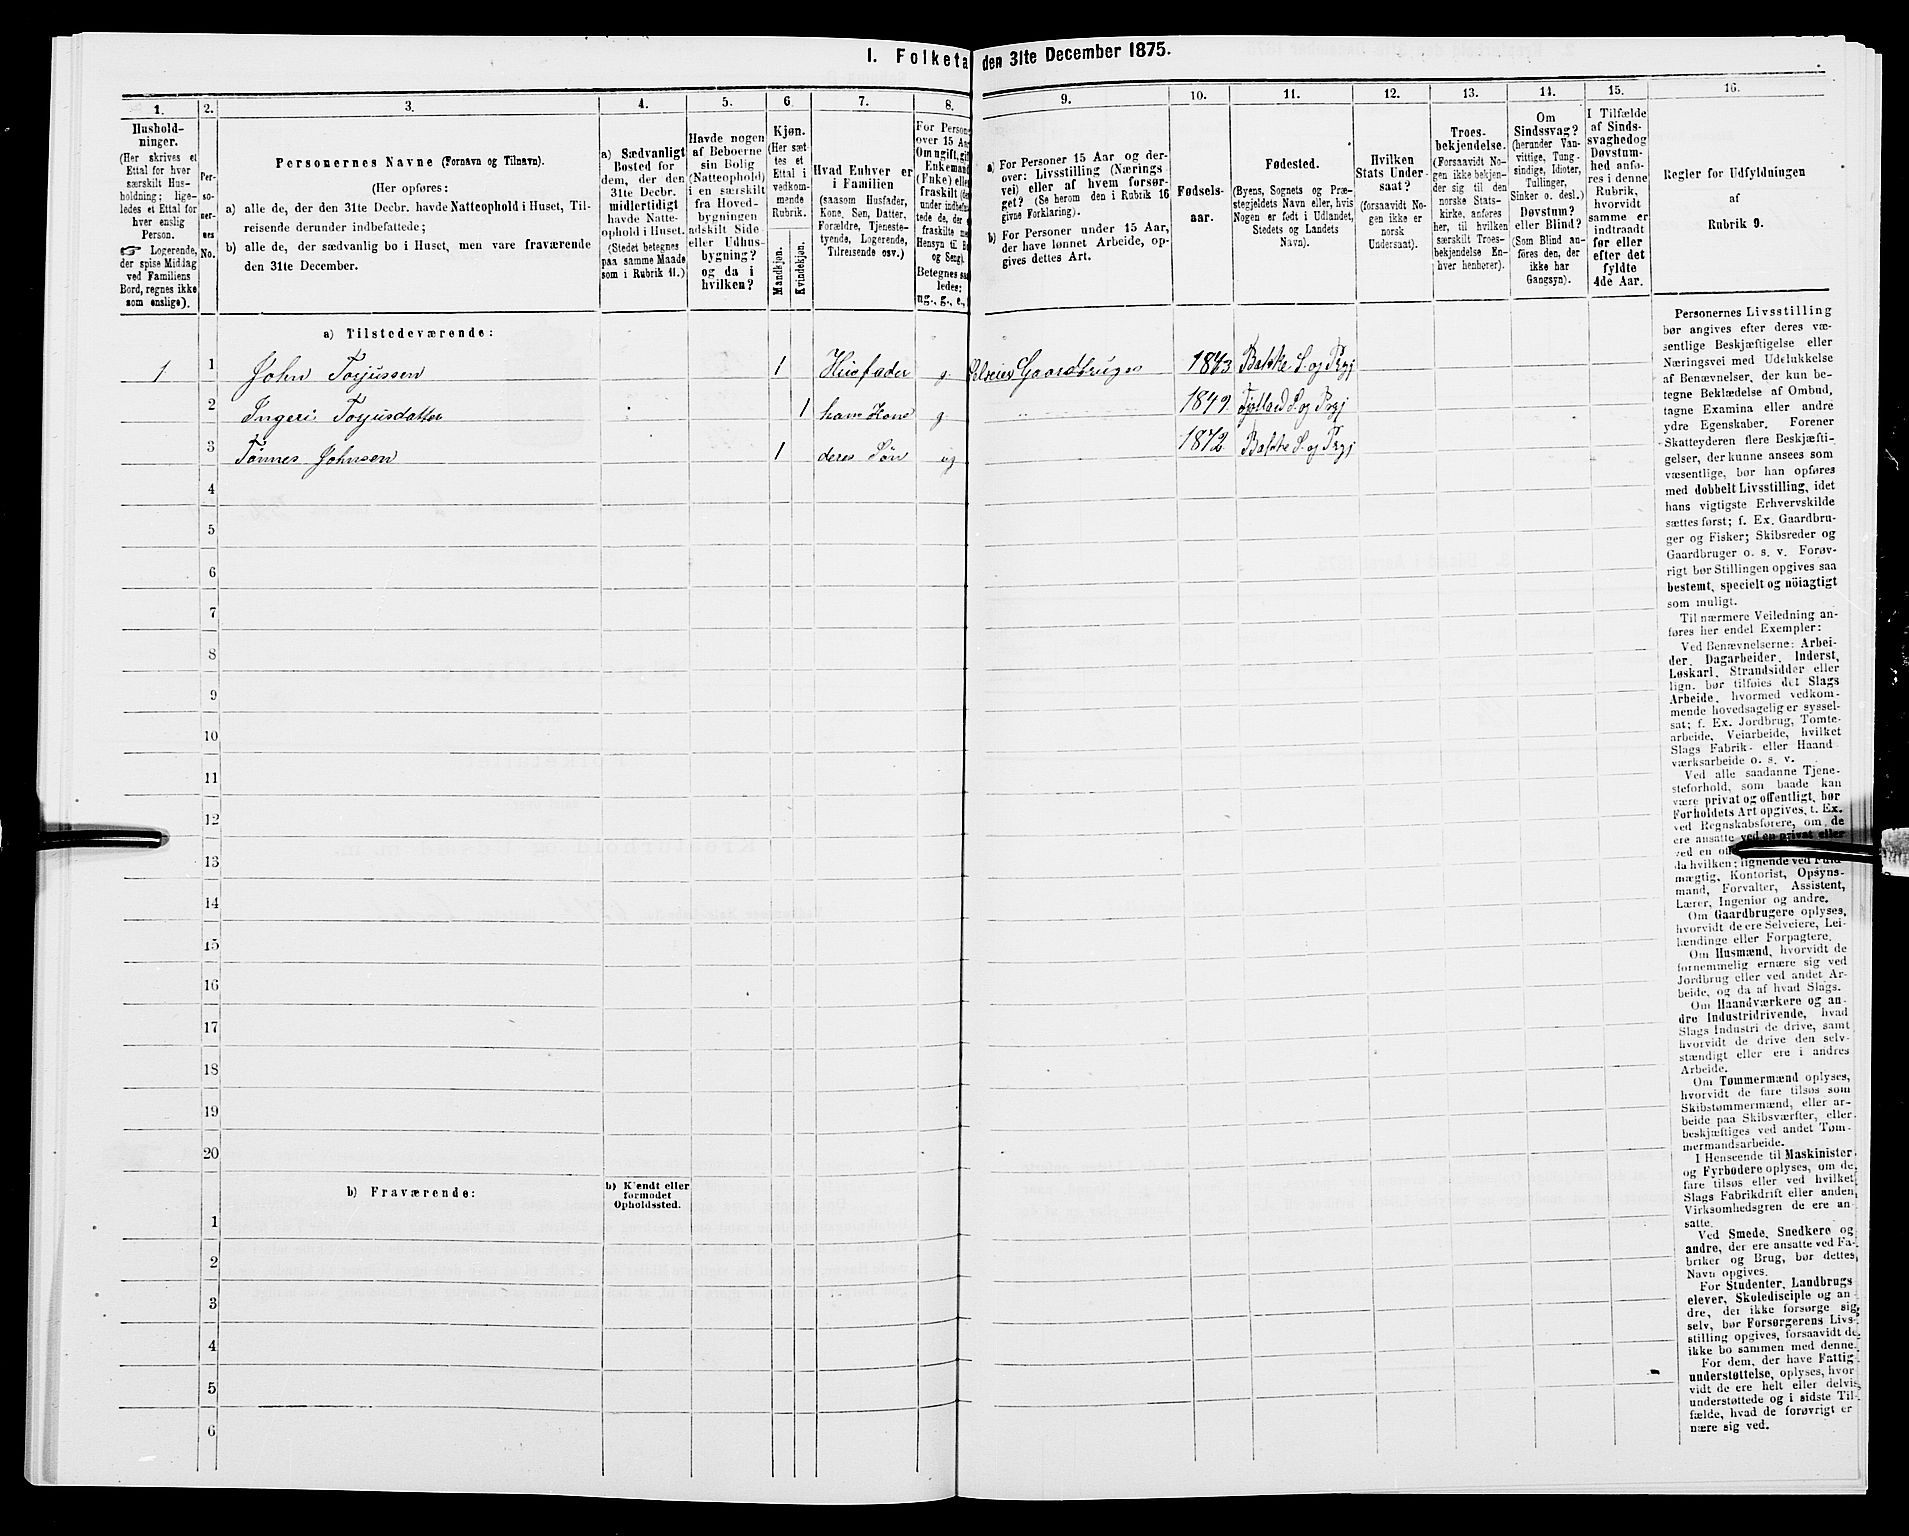 I. Folketa
den 31te December 1875.
1.
2.
3.
4.
5.
6.
7.
8.
9.
10.
11.
12.
13.
14.
15.
16.
Hushold-
ninger.
(Her skrives et
Ettal for hver
særskilt Hus-
holdning; lige-
ledes et Ettal for
hver enslig
Person.
☞ Logerende,
der spise Middag
ved Familiens
Bord, regnes ikke
som enslige).
Per-
soner-
nes
No.
Personernes Navne (Fornavn og Tilnavn).
(Her opføres:
a) alle de, der den 31te Decbr. havde Natteophold i Huset, Til-
reisende derunder indbefattede;
b) alle de, der sædvanlig bo i Huset, men vare fraværende
den 31te December.
a) Sædvanligt
Bosted for
dem, der den
31te Decbr.
midlertidigt
havde Natte-
ophold i Huset.
(Stedet betegnes
paa samme Maade
som i Rubrik 11.)
Havde nogen
af Beboerne
sin Bolig
(Natteophold)
i en særskilt
fra Hoved-
bygningen
adskilt Side-
eller Udhus-
bygning?
og da i
hvilken?
Kjøn.
(Her sæt-
tes et
Ettal i
vedkom-
mende
Rubrik.
Mandkjøn.
Kvindekjøn.
Hvad Enhver er
i Familien
(saasom Husfader,
Kone, Søn, Datter,
Forældre, Tjeneste-
tyende, Logerende,
Tilreisende osv.)
For Persone
over 15 Aar
Om ugift, gif
Enkemand
(Enke) elle
fraskilt (de
under indbefat-
tede de, der
fraskilte me
Hensyn til B
og Seng).
Betegnes saa
ledes:
ug., g., e.,
a) For Personer 15 Aar og der-
over: Livsstilling (Nærings
vei) eller af hvem forsør-
get? (Se herom den i Rubrik 16
givne Forklaring).
b) For Personer under 15 Aar,
der have lønnet Arbeide, op-
gives dettes Art.
Fødsels-
aar.
Fødested.
(Byens, Sognets og Præ-
stegjeldets Navn eller, hvis
Nogen er født i Udlandet,
Stedets og Landets
Navn).
Hvilken
Stats Under-
saat?
(forsaavidt No-
gen ikke er
norsk
Undersaat).
Troes-
bekjendelse.
(Forsaavidt No-
gen ikke bekjen-
der sig til den
norske Stats-
kirke, anføres
her, til hvilken
særskilt Troes-
bekjendelse En-
hver henhører).
Om
Sindssvag?
(herunder Van-
vittige, Tung-
sindige, Idioter,
Tullinger,
Sinker o. desl.)
Døvstum?
eller Blind?
(Som Blind an-
føres den, der
ikke har
Gangsyn).
I Tilfælde
af Sinds-
svaghed og
Døvstum-
hed anfø-
res i denne
Rubrik,
hvorvidt
samme er
indtraadt
før eller
efter det
fyldte
4de Aar.
Regler for Udfyldningen
af
Rubrik 9.
a) Tilstedeværende:
1 1 John Torjussen 1 Huusfader g. Selveier Gaardbruger 1843 Bakke S. og Prgj
2 Ingeri Torjusdatter 1 hans Kone g. 1849. Fjotland S. og Prgj
3 Tønnes Johnsen 1 deres Søn ug 1872. Bakke S. og Prgj
4
5
6
7
8
9
10
11
12
13
14
15
16
17
18
19
20
b) Fraværende:
b) Kjendt eller
formodet
Opholdssted.
1
2
3
4
5
6
Personernes Livsstilling
bør angives efter deres væ-
sentlige Beskjæftigelse eller
Næringsvei med Udelukkelse
af Benævnelser, der kun be-
tegne Beklædelse af Ombud,
tagne Examina eller andre
ydre Egenskaber. Forener
Skatteyderen flere Beskjæfti-
gelser, der kunne ansees som
væsentlige, bør han opføres
med dobbelt Livsstilling, idet
hans vigtigste Erhvervskilde
sættes først; f. Ex. Gaardbru-
ger og Fisker; Skibsreder og
Gaardbruger o. s. v. Forøv-
rigt bør Stillingen opgives saa
bestemt, specielt og nöiagtigt
som muligt.
Til nærmere Veiledning an-
føres her endel Exempler:
Ved Benævnelserne: Arbei-
der, Dagarbeider, Inderst,
Løskarl, Strandsidder eller
lign. bør tilføies det Slags
Arbeide, hvormed vedkom-
mende hovedsagelig er syssel-
sat; f. Ex. Jordbrug, Tomte-
arbeide, Veiarbeide, hvilket
Slags Fabrik- eller Haand
værksarbeide o. s. v.
Ved alle saadanne Tjene-
steforhold, som baade kan
være privat og offentligt, bør
Forholdets Art opgives, t. Ex.
ved Regnskabsførere, om de
ere ansatte ved en privat eller
ved en off
da hvilken; lignende ved Fuld-
mægtig, Kontorist, Opsyns-
mand, Forvalter, Assistent,
Lærer, Ingeniør og andre.
Om Gaardbrugere oplyses,
hvorvidt de ere Selveiere, Lei-
lændinge eller Forpagtere.
Om Husmænd, hvorvidt de
fornemmelig ernære sig ved
Jordbrug eller ved andet Ar-
beide, og da af hvad Slags.
Om Haandværkere og an-
dre Industridrivende, hvad
Slags Industri de drive, samt
hvorvidt de drive den selv-
stændigt eller ere i andres
Arbeide.
Om Tømmermænd oplyses,
hvorvidt de fare tilsøs som
Skibstømmermænd, eller ar-
beide paa Skibsværfter, eller
beskjæftiges ved andet Tøm-
mermandsarbeide.
I Henseende til Maskinister
og Fyrbødere oplyses, om de
fare tilsøs eller ved hvilket
Slags Fabrikdrift eller anden
Virksomhedsgren de ere an-
satte.
Ved Smede, Snedkere og
andre, der ere ansatte ved Fa-
briker og Brug, bør dettes
Navn opgives.
For Studenter, Landbrugs
elever, Skoledisciple og an-
dre, der ikke forsørge sig
selv, bør Forsørgerens Livs-
stilling opgives, forsaavidt de
ikke bo sammen med denne.
For dem, der have Fattig-
understøttelse, oplyses, hvor-
vidt de ere helt eller delvis
understøttede og i sidste Til-
fælde, hvad de forøvrigt er
nære sig ved.